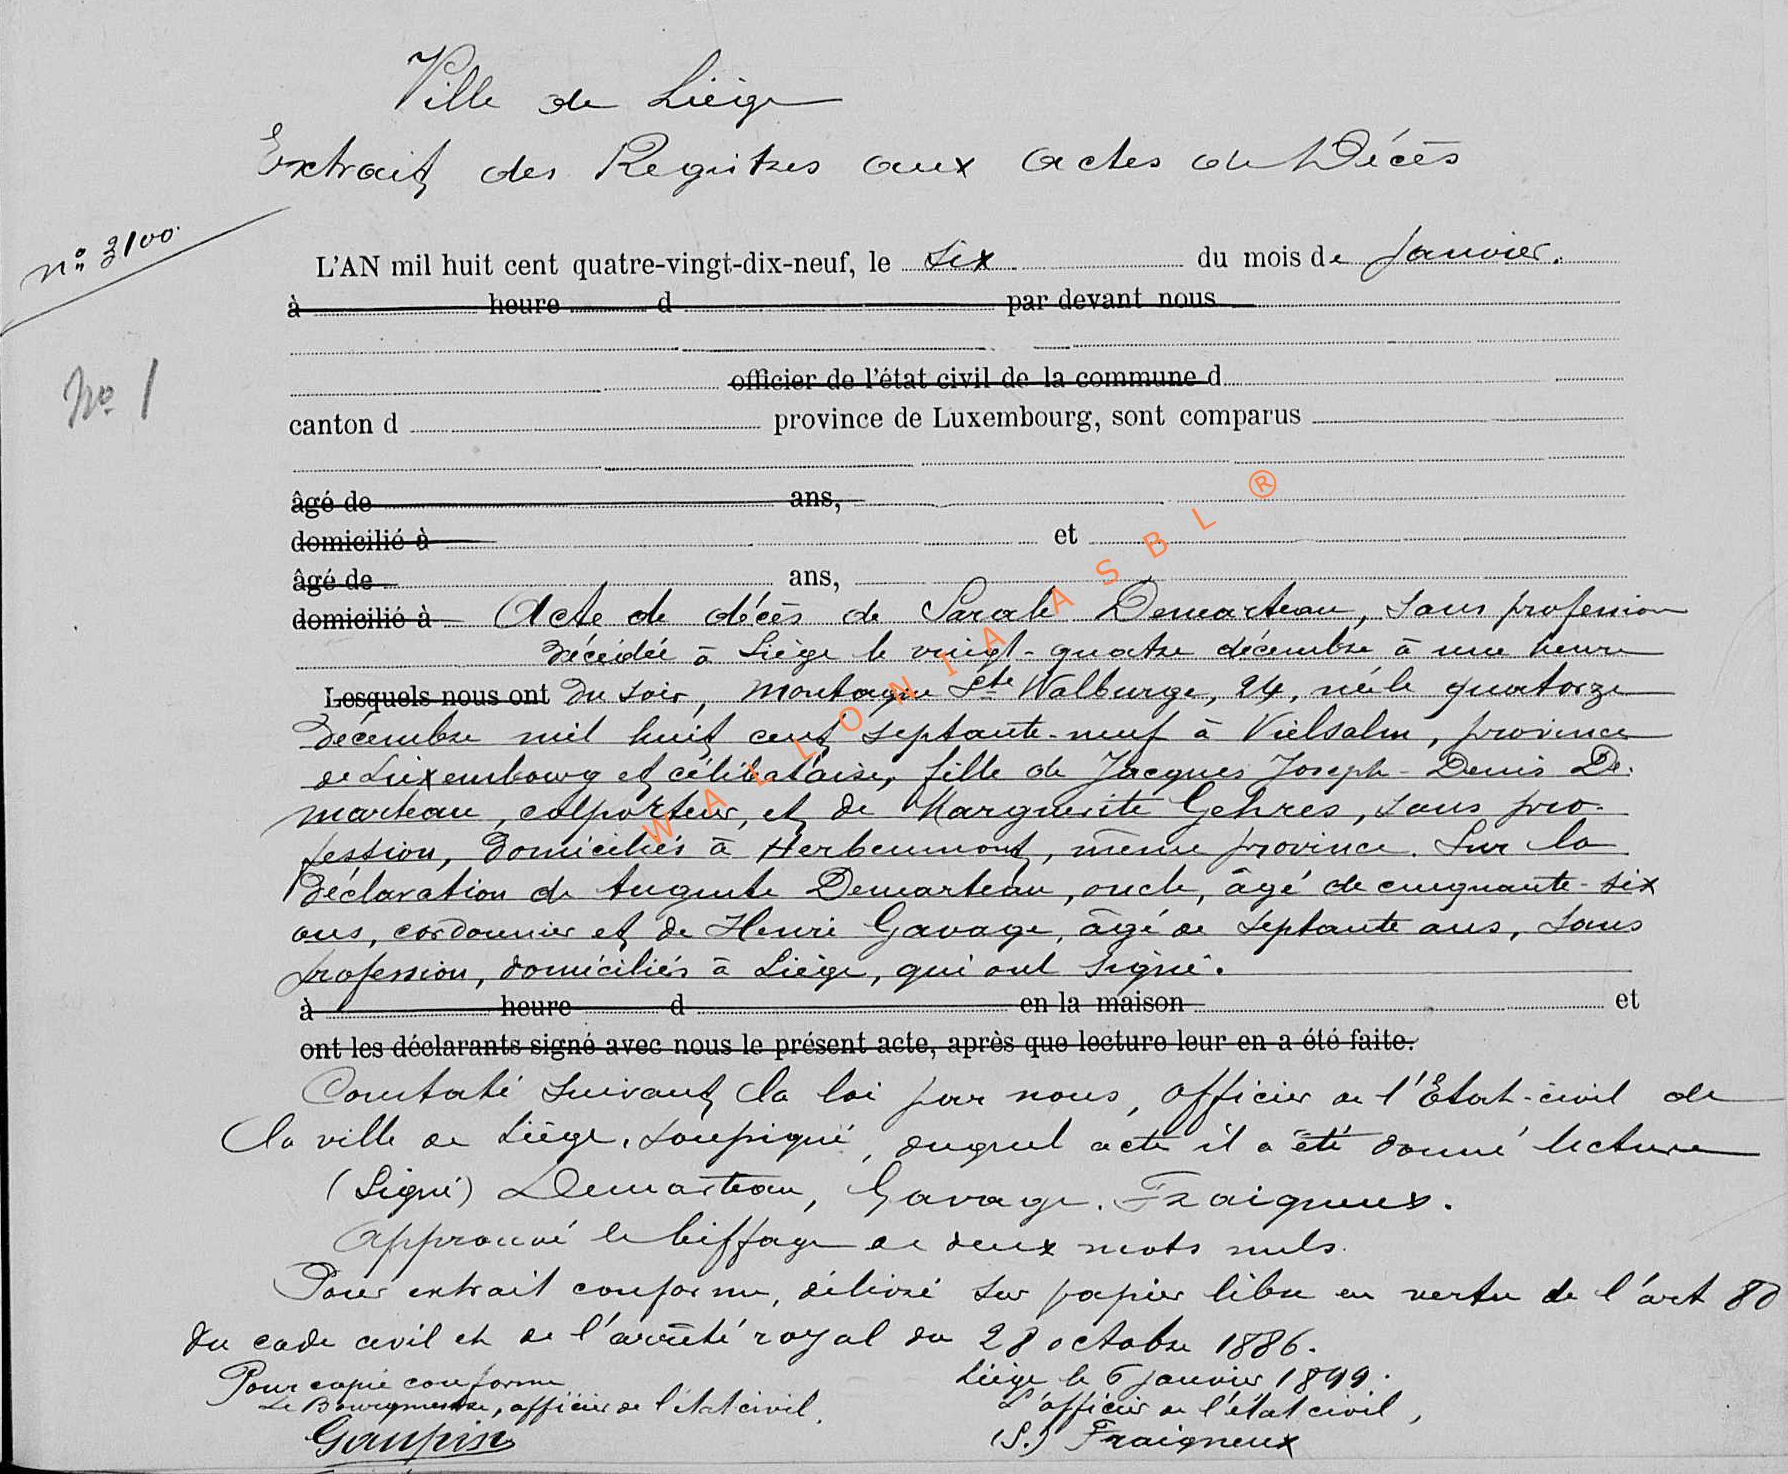 Ville de Liége
Extrait des Registres aux actes de Décès
n° 3100.
L'AN mil huit cent quatre-vingt-dix-neuf, le six du mois de Janvier.
à heure d par devant nous
N° 1
officier de l'état civil de la commune d
canton d province de Luxembourg, sont comparus
âgé de ans,
domicilié à et
âgé de ans,
domicilié à Acte de décès de Sarah Demarteau, sans profession
décédée à Liége le vingt-quatre décembre à une heure
Lesquels nous ont du soir, Montagne Ste Walburge, 24, née le quatorze
décembre mil huit cent septante-neuf à Vielsalm, province
de Luxembourg et célibataire, fille de Jacques Joseph-Denis De-
marteau, colporteur, et de Marguerite Gehres, sans pro-
fession, domiciliés à Herbeumont, même province. Sur la
déclaration de Auguste Demarteau, oncle, âgé de cinquante-six
ans, cordonnier et de Henri Gavage, âgé de septante ans, sans
profession, domiciliés à Liége, qui ont signé.
à heure d en la maison et
ont les déclarants signé avec nous le présent acte, après que lecture leur en a été faite.
Constaté suivant la loi par nous, officier de l'Etat-civil de
la ville de Liége, soussigné, duquel acte il a été donné lecture
(Signé) Demarteau, Gavage. Fraigneux.
Approuvé le biffage de deux mots nuls.
Pour extrait conforme, délivré sur papier libre en vertu de l'art 80
du code civil et de l'arrêté royal du 28 octobre 1886.
Pour copie conforme
Le Bourgmestre, officier de l'état civil,
Gaupin
Liége le 6 janvier 1899.
L'officier de l'état civil,
(S.) Fraigneux
WALLONIA ASBL ®